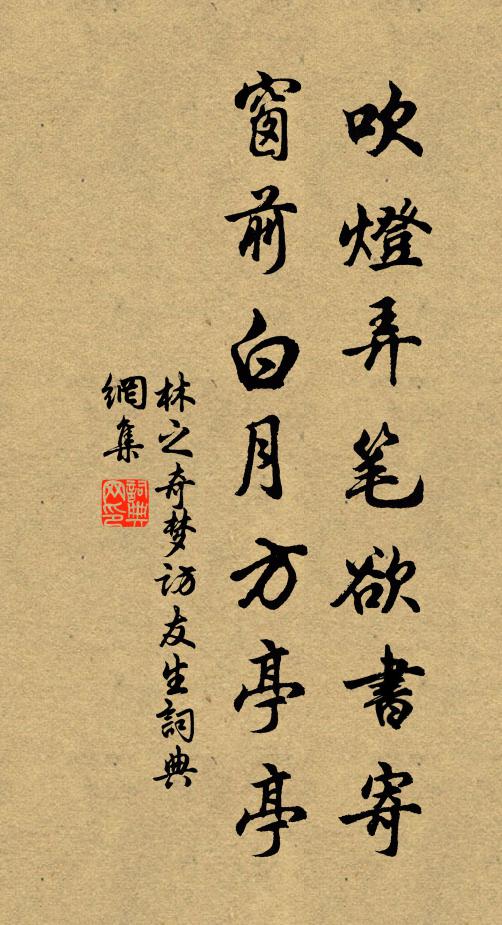 吹燈弄笔欲書寄
窗前白月方亭亭
林之奇梦訪友生詞典
網集
詞典
网印